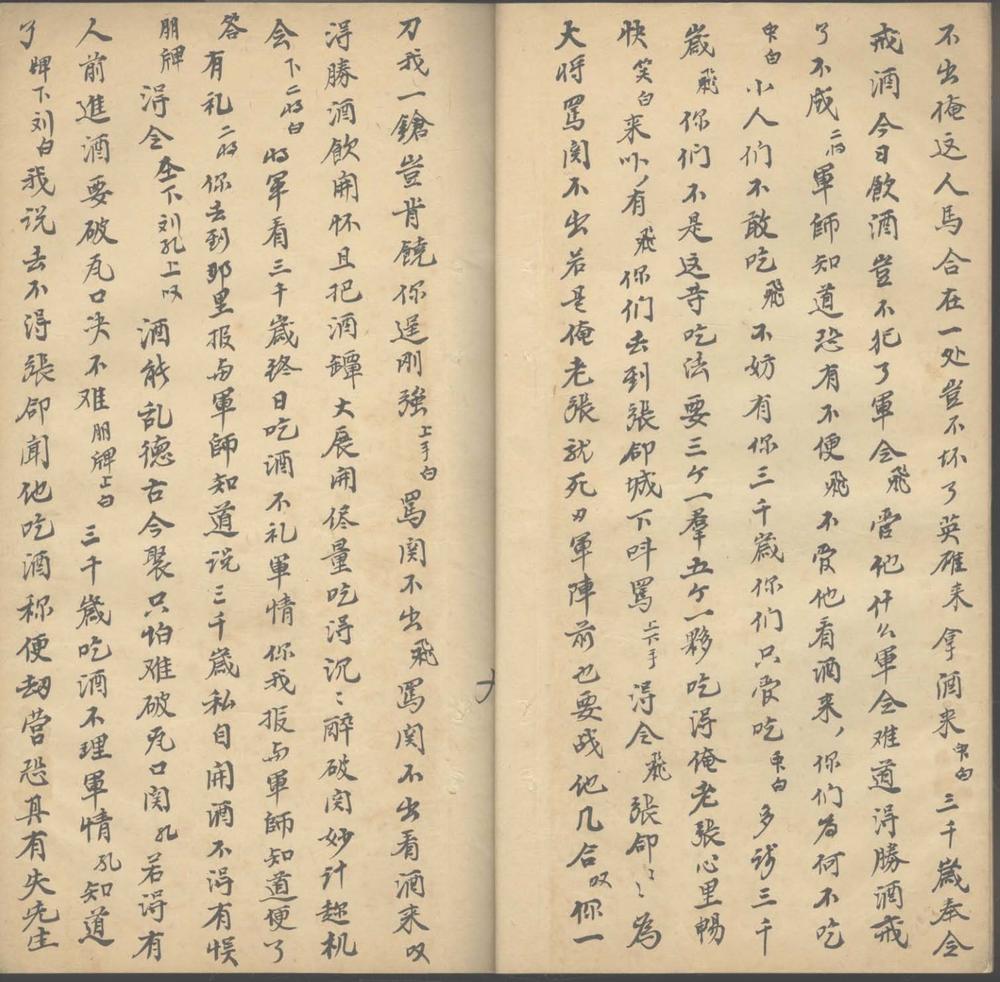 不出俺这人馬合在一处豈不坏了英雄来拿酒来衆白三千歲奉令
戒酒今日飲酒豈不犯了軍令飛管他什么軍令难道淂勝酒戒
了不成二將軍師知道恐有不便飛不管他看酒来你们为何不吃
衆白小人们不敢吃飛不妨有你三千歲你们只管吃衆白多謝三千
歲飛你们不是这等吃法要三ケ一羣五ケ一夥吃淂俺老張心里暢
快笑白来吓有飛你们去到張郃城下呌罵上下手淂令飛張郃〻〻為
大將罵関不出若是俺老張就死力軍陣前也要战他几合又你一
刀我一鎗豈肯饒你逞刚強上手白罵関不出飛罵関不出看酒来又
淂勝酒飲開怀且把酒罈大展開侭量吃淂沉〻醉破関妙计趂机
会下二將白將軍看三千歲終日吃酒不礼軍情你我报与軍師知道便了
答有礼二將你去到那里报与軍師知道说三千歲私自開酒不淂有悮
朋牌淂令下刘孔上又酒能乱德古今聚只怕难破瓦口関孔若淂有
人前進酒要破瓦口决不难朋牌上白三千歲吃酒不理軍情孔知道
了牌下刘白我说去不淂張郃闻他吃酒称便刼营恐其有失先生